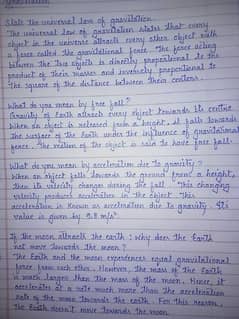 Gravitation
State the universal law of gravitation.
The universal law of gravitation states that every
object in the universe attracts every other object with
a force called the gravitational force. The force acting
between the two objects is directly proportional to the
product of their masses and inversely proportional to
the square of the distance between their centres.
What do you mean by free fall?
Gravity of Earth attracts every object towards its centre.
When an object is released from a height, it falls towards
the surface of the Earth under the influence of gravitational
force. The motion of the object is said to have free fall.
What do you mean by acceleration due to gravity?
When an object falls towards the ground from a height,
then its velocity changes during the fall. This changing
velocity produces acceleration in the object. This
acceleration is known as acceleration due to gravity. Its
value is given by 9.8 m/s².
If the moon attracts the earth : why does the Earth
not move towards the moon?
The Earth and the moon experiences equal gravitational
force from each other. However, the mass of the Earth
is much larger than the mass of the moon. Hence, it
accelerates at a rate much more than the acceleration
rate of the moon towards the earth. For this reason,
the Earth doesn't move towards the moon.